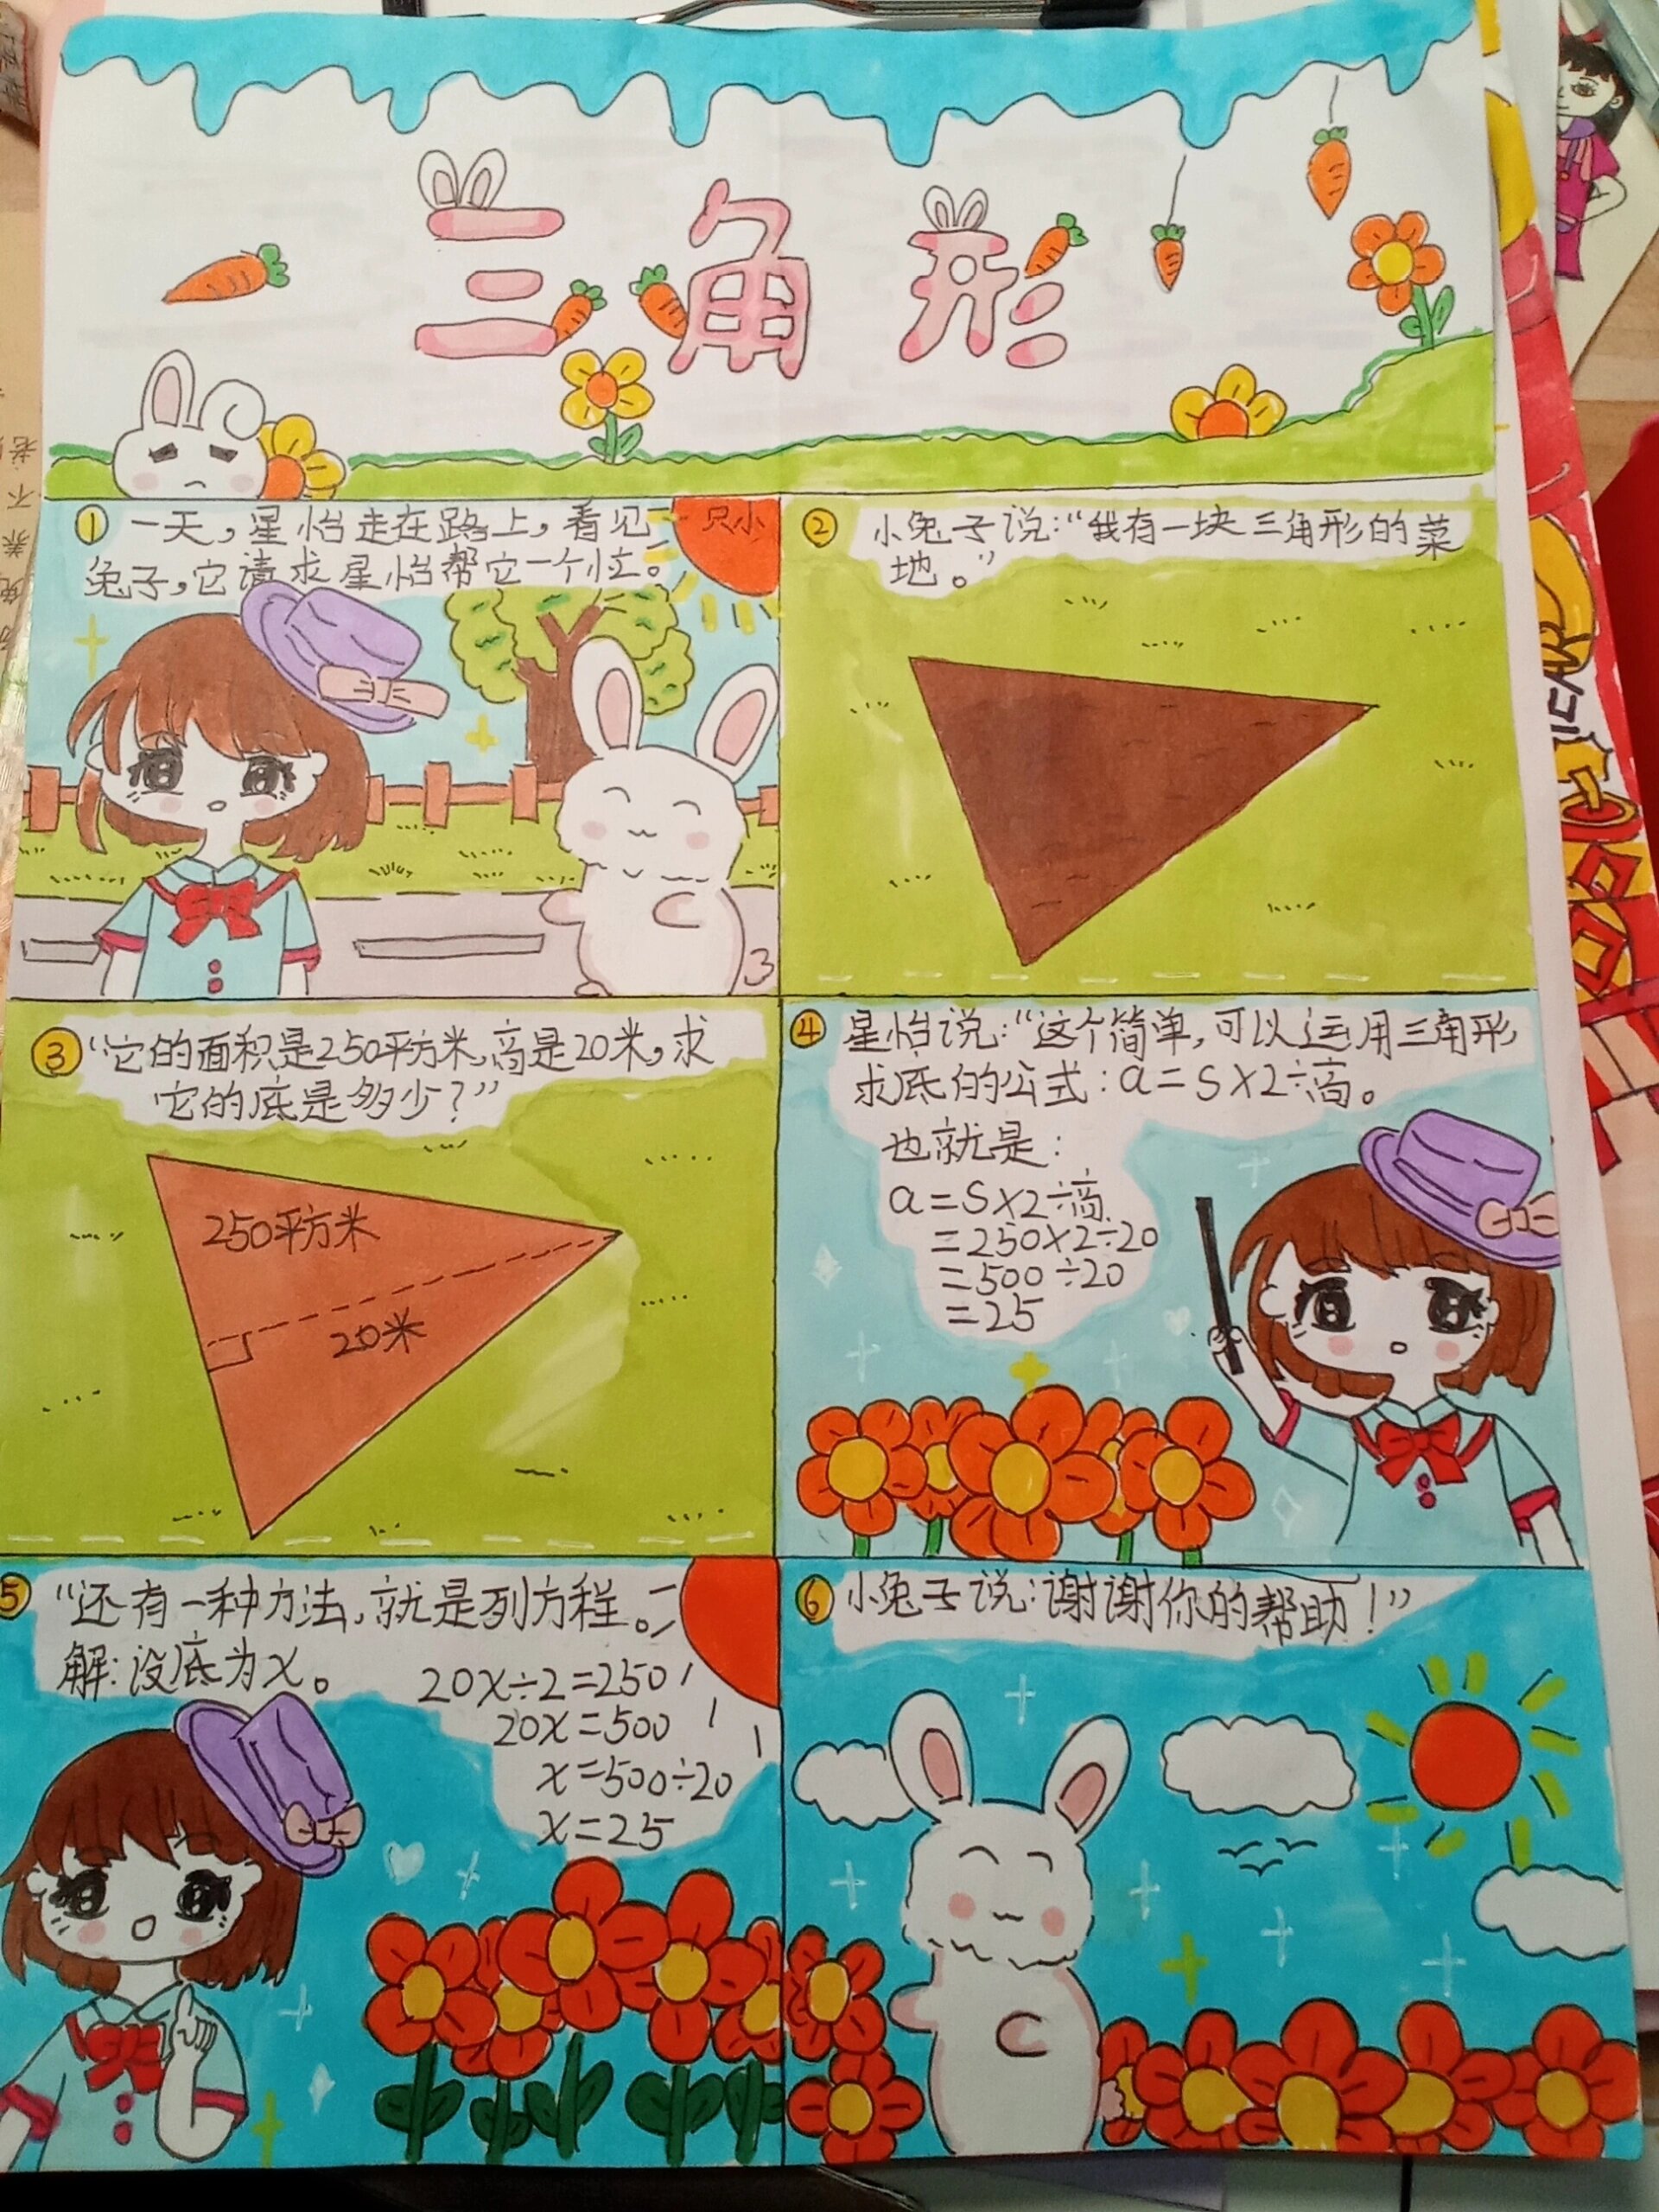 三角形
① 一天，星怡走在路上，看见一只小
兔子，它请求星怡帮它一个忙。
② 小兔子说：“我有一块三角形的菜
地。”
③ “它的面积是250平方米，高是20米，求
它的底是多少？”
250平方米
20米
④ 星怡说：“这个简单，可以运用三角形
求底的公式：a=S×2÷高。
也就是：
a=S×2÷高
=250×2÷20
=500÷20
=25
5 “还有一种方法，就是列方程。
解：设底为x。
20x÷2=250
20x=500
x=500÷20
x=25
⑥ 小兔子说：谢谢你的帮助！”